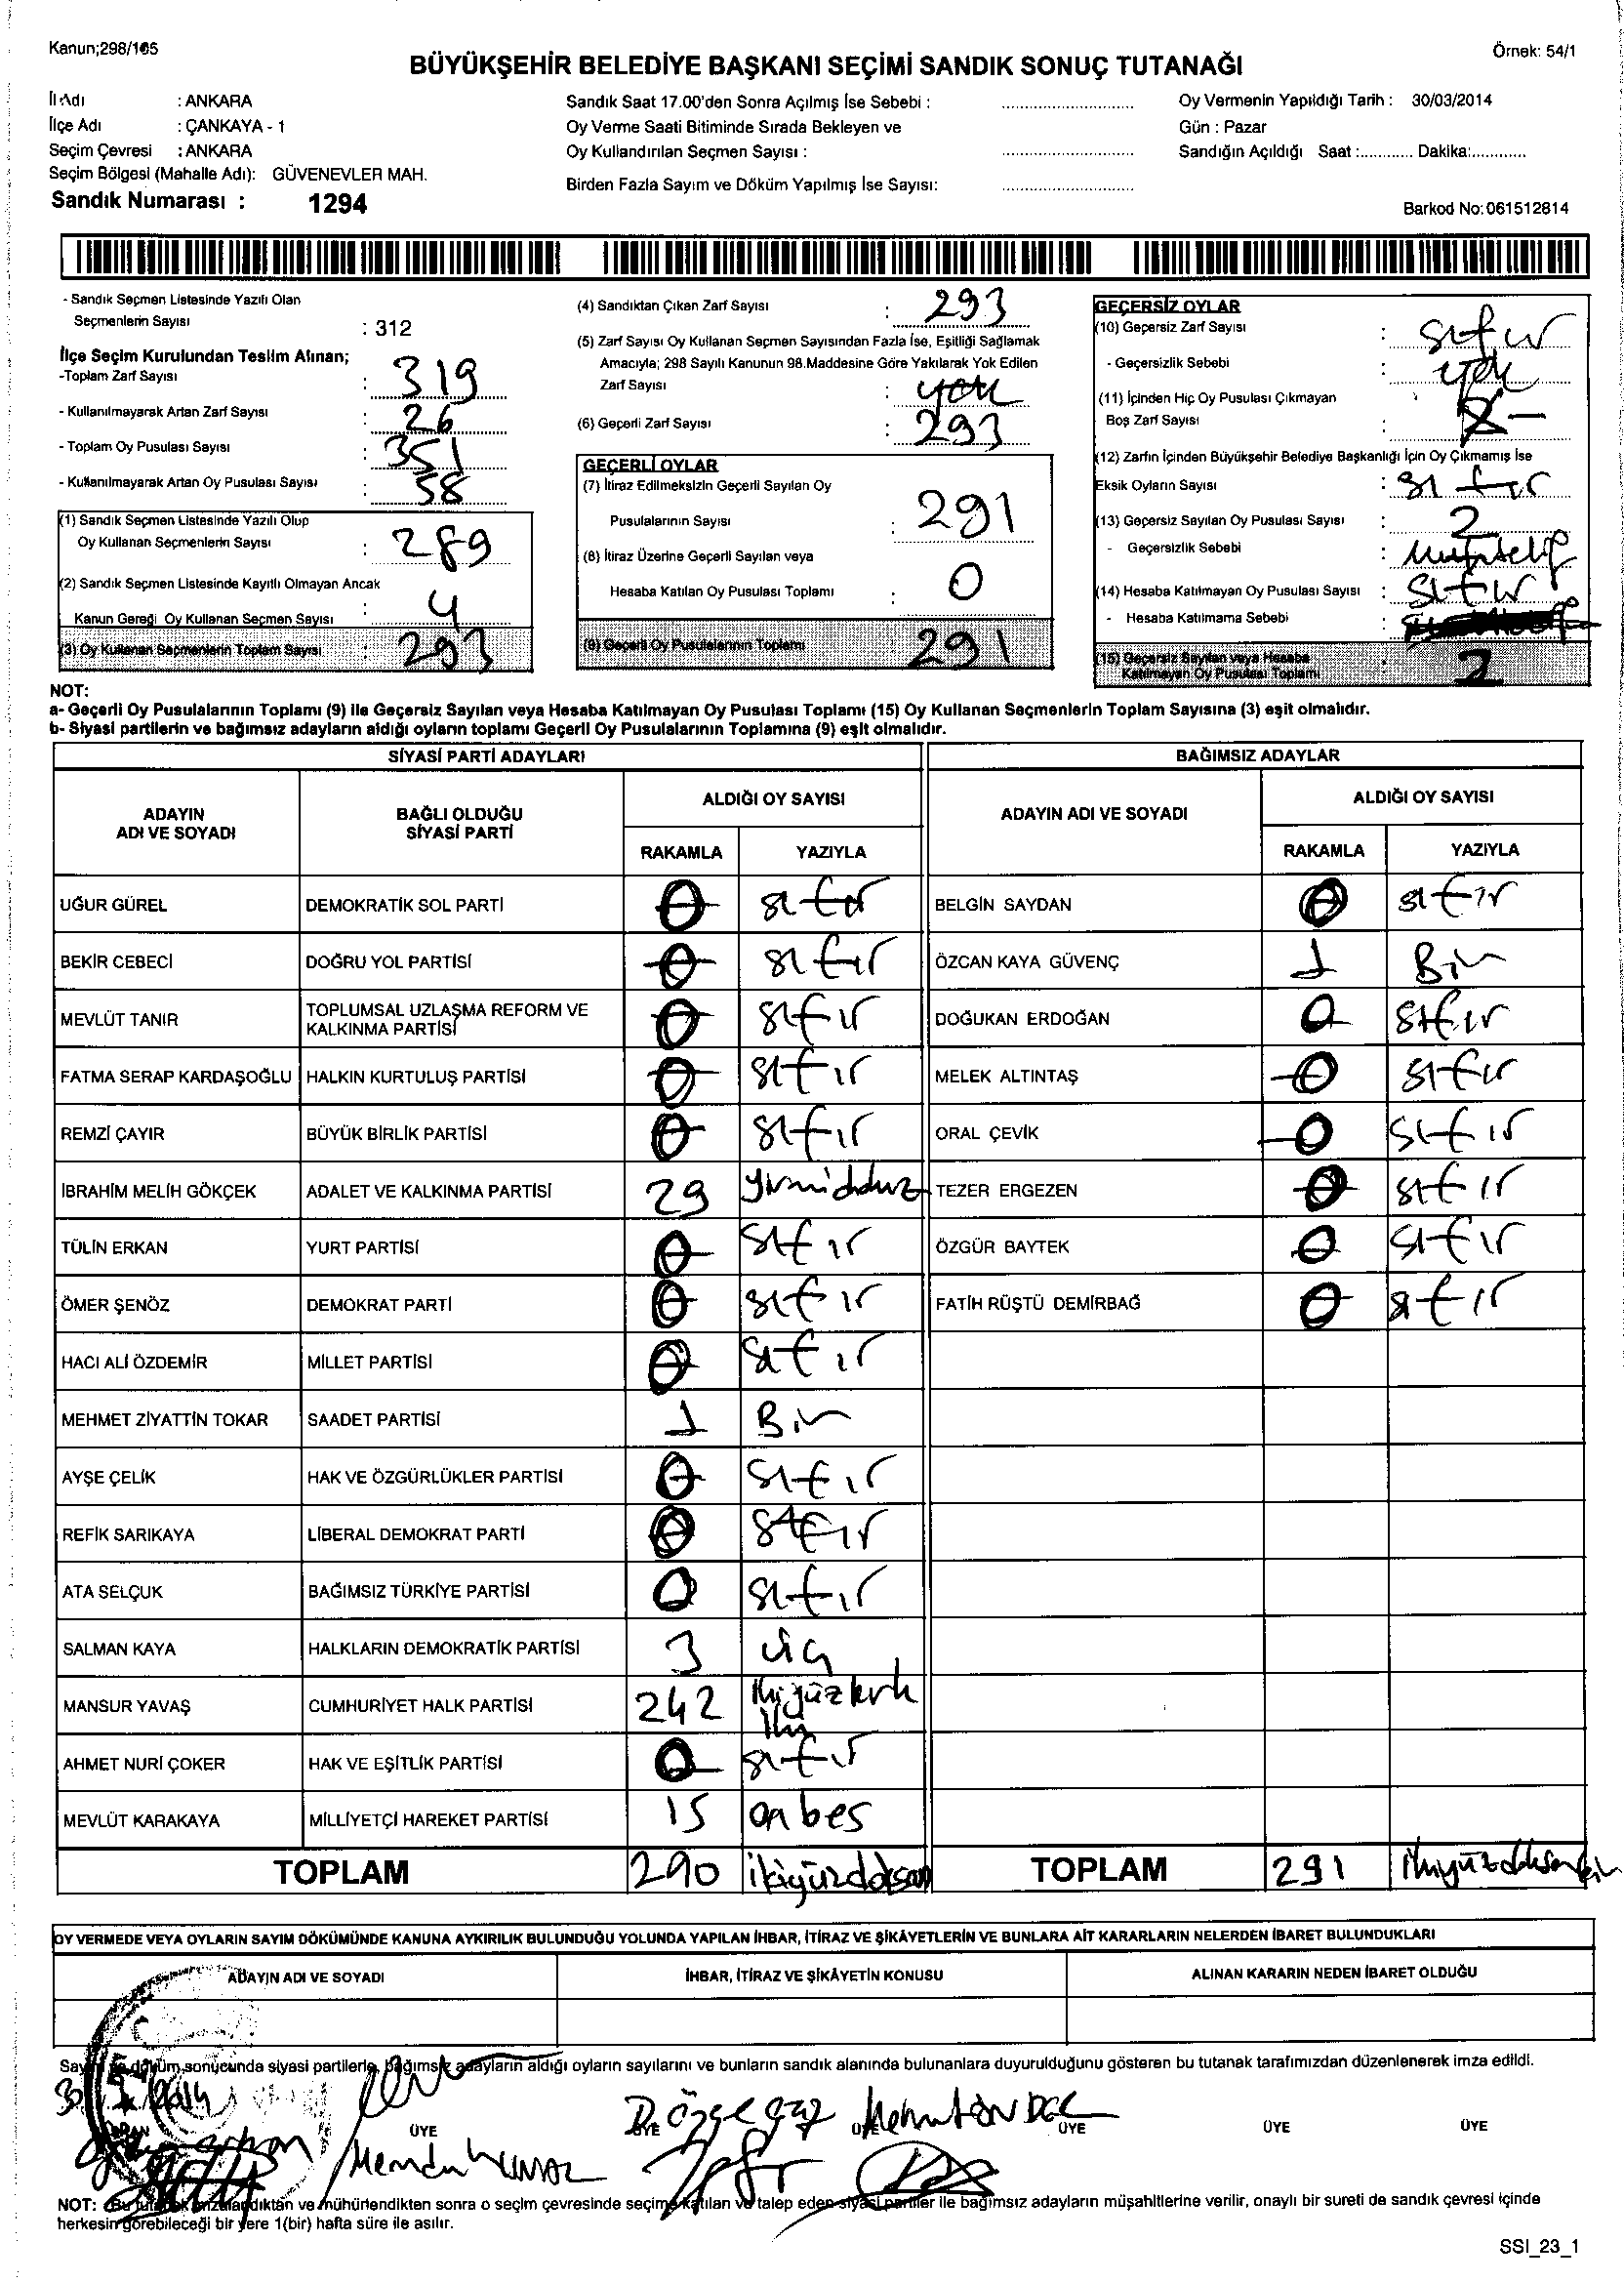 Kanun;298/165
Örnek: 54/1
BÜYÜKŞEHİR BELEDİYE BAŞKANI SEÇİMİ SANDIK SONUÇ TUTANAĞI
İl Adı : ANKARA
İlçe Adı : ÇANKAYA - 1
Seçim Çevresi : ANKARA
Seçim Bölgesi (Mahalle Adı): GÜVENEVLER MAH.
Sandık Numarası : 1294
Sandık Saat 17.00'den Sonra Açılmış İse Sebebi :
Oy Verme Saati Bitiminde Sırada Bekleyen ve
Oy Kullandırılan Seçmen Sayısı :
Birden Fazla Sayım ve Döküm Yapılmış İse Sayısı:
Oy Vermenin Yapıldığı Tarih : 30/03/2014
Gün : Pazar
Sandığın Açıldığı Saat :............ Dakika:............
Barkod No:061512814
- Sandık Seçmen Listesinde Yazılı Olan
Seçmenlerin Sayısı : 312
İlçe Seçim Kurulundan Teslim Alınan;
-Toplam Zarf Sayısı : 319
- Kullanılmayarak Artan Zarf Sayısı : 26
- Toplam Oy Pusulası Sayısı : 351
- Kullanılmayarak Artan Oy Pusulası Sayısı : 58
(1) Sandık Seçmen Listesinde Yazılı Olup
Oy Kullanan Seçmenlerin Sayısı : 289
(2) Sandık Seçmen Listesinde Kayıtlı Olmayan Ancak
Kanun Gereği Oy Kullanan Seçmen Sayısı : 4
(3) Oy Kullanan Seçmenlerin Toplam Sayısı : 293
(4) Sandıktan Çıkan Zarf Sayısı : 293
(5) Zarf Sayısı Oy Kullanan Seçmen Sayısından Fazla İse, Eşitliği Sağlamak
Amacıyla; 298 Sayılı Kanunun 98.Maddesine Göre Yakılarak Yok Edilen
Zarf Sayısı : yok
(6) Geçerli Zarf Sayısı : 293
GEÇERLİ OYLAR
(7) İtiraz Edilmeksizin Geçerli Sayılan Oy
Pusulalarının Sayısı : 291
(8) İtiraz Üzerine Geçerli Sayılan veya
Hesaba Katılan Oy Pusulası Toplamı : 0
(9) Geçerli Oy Pusulalarının Toplamı 291
GEÇERSİZ OYLAR
(10) Geçersiz Zarf Sayısı : sıfır
- Geçersizlik Sebebi : yok
(11) İçinden Hiç Oy Pusulası Çıkmayan
Boş Zarf Sayısı :
(12) Zarfın İçinden Büyükşehir Belediye Başkanlığı İçin Oy Çıkmamış İse
Eksik Oyların Sayısı : sıfır
(13) Geçersiz Sayılan Oy Pusulası Sayısı : 2
- Geçersizlik Sebebi : Muhtelif
(14) Hesaba Katılmayan Oy Pusulası Sayısı : sıfır
- Hesaba Katılmama Sebebi :
(15) Geçersiz Sayılan veya Hesaba
Katılmayan Oy Pusulası Toplamı : 2
NOT:
a- Geçerli Oy Pusulalarının Toplamı (9) ile Geçersiz Sayılan veya Hesaba Katılmayan Oy Pusulası Toplamı (15) Oy Kullanan Seçmenlerin Toplam Sayısına (3) eşit olmalıdır.
b- Siyasi partilerin ve bağımsız adayların aldığı oyların toplamı Geçerli Oy Pusulalarının Toplamına (9) eşit olmalıdır.
SİYASİ PARTİ ADAYLARI
ADAYIN ADI VE SOYADI
BAĞLI OLDUĞU SİYASİ PARTİ
ALDIĞI OY SAYISI
RAKAMLA YAZIYLA
UĞUR GÜREL DEMOKRATİK SOL PARTİ 0 sıfır
BEKİR CEBECİ DOĞRU YOL PARTİSİ 0 sıfır
MEVLÜT TANIR TOPLUMSAL UZLAŞMA REFORM VE KALKINMA PARTİSİ 0 sıfır
FATMA SERAP KARDAŞOĞLU HALKIN KURTULUŞ PARTİSİ 0 sıfır
REMZİ ÇAYIR BÜYÜK BİRLİK PARTİSİ 0 sıfır
İBRAHİM MELİH GÖKÇEK ADALET VE KALKINMA PARTİSİ 29 yirmidokuz
TÜLİN ERKAN YURT PARTİSİ 0 sıfır
ÖMER ŞENÖZ DEMOKRAT PARTİ 0 sıfır
HACI ALİ ÖZDEMİR MİLLET PARTİSİ 0 sıfır
MEHMET ZİYATTİN TOKAR SAADET PARTİSİ 1 Bir
AYŞE ÇELİK HAK VE ÖZGÜRLÜKLER PARTİSİ 0 sıfır
REFİK SARIKAYA LİBERAL DEMOKRAT PARTİ 0 sıfır
ATA SELÇUK BAĞIMSIZ TÜRKİYE PARTİSİ 0 sıfır
SALMAN KAYA HALKLARIN DEMOKRATİK PARTİSİ 3 üç
MANSUR YAVAŞ CUMHURİYET HALK PARTİSİ 242 İkiyüzkırk iki
AHMET NURİ ÇOKER HAK VE EŞİTLİK PARTİSİ 0 sıfır
MEVLÜT KARAKAYA MİLLİYETÇİ HAREKET PARTİSİ 15 onbeş
TOPLAM 290 ikiyüzdoksan
BAĞIMSIZ ADAYLAR
ADAYIN ADI VE SOYADI
ALDIĞI OY SAYISI
RAKAMLA YAZIYLA
BELGİN SAYDAN 0 sıfır
ÖZCAN KAYA GÜVENÇ 1 Bir
DOĞUKAN ERDOĞAN 0 sıfır
MELEK ALTINTAŞ 0 sıfır
ORAL ÇEVİK 0 sıfır
TEZER ERGEZEN 0 sıfır
ÖZGÜR BAYTEK 0 sıfır
FATİH RÜŞTÜ DEMİRBAĞ 0 sıfır
TOPLAM 291 ikiyüzdoksanbir
OY VERMEDE VEYA OYLARIN SAYIM DÖKÜMÜNDE KANUNA AYKIRILIK BULUNDUĞU YOLUNDA YAPILAN İHBAR, İTİRAZ VE ŞİKÂYETLERİN VE BUNLARA AİT KARARLARIN NELERDEN İBARET BULUNDUKLARI
ADAYIN ADI VE SOYADI
İHBAR, İTİRAZ VE ŞİKÂYETİN KONUSU
ALINAN KARARIN NEDEN İBARET OLDUĞU
Sayım ve döküm sonucunda siyasi partilerle, bağımsız adayların aldığı oyların sayılarını ve bunların sandık alanında bulunanlara duyurulduğunu gösteren bu tutanak tarafımızdan düzenlenerek imza edildi.
ÜYE ÜYE ÜYE ÜYE ÜYE ÜYE
NOT: Bu tutanak imzalandıktan ve mühürlendikten sonra o seçim çevresinde seçime katılan ve talep eden siyasi partiler ile bağımsız adayların müşahitlerine verilir, onaylı bir sureti de sandık çevresi içinde
herkesin görebileceği bir yere 1(bir) hafta süre ile asılır.
SSI_23_1